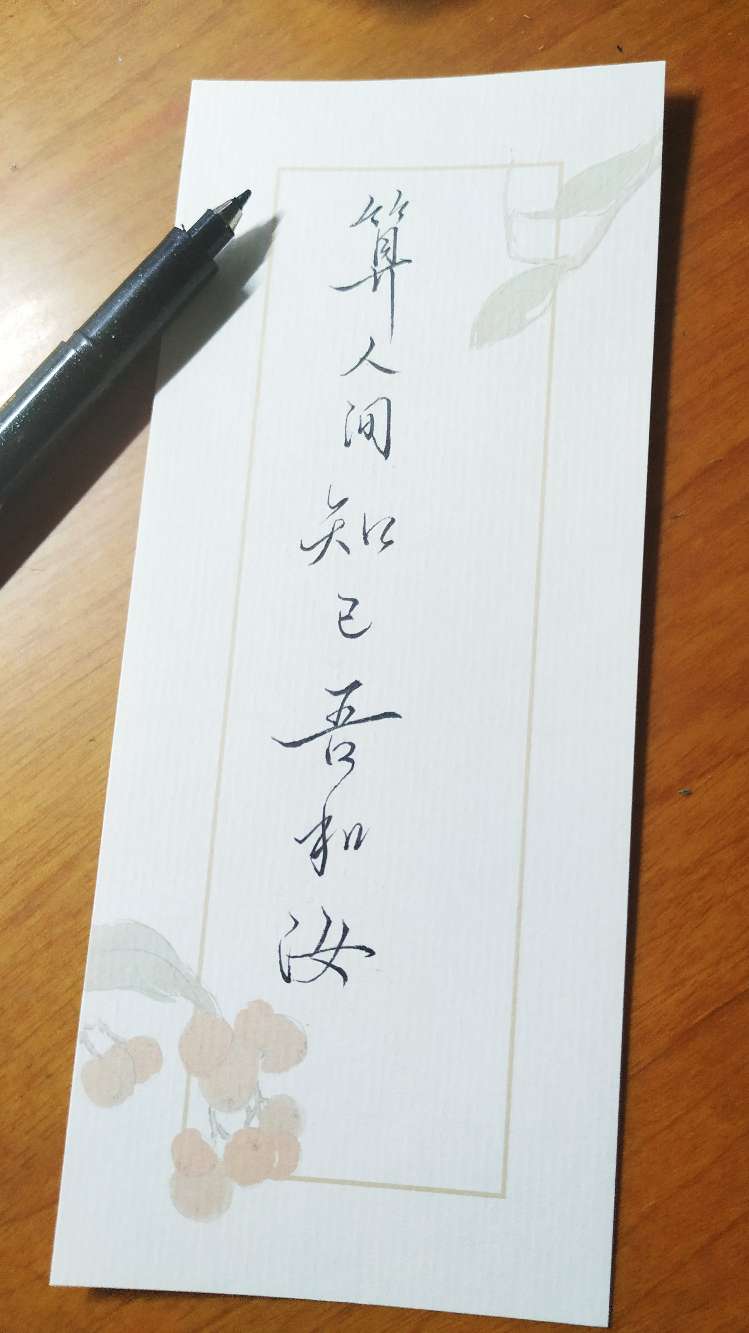 算人间知己吾和汝